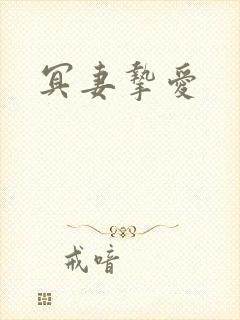 冥妻摯愛
戒喑